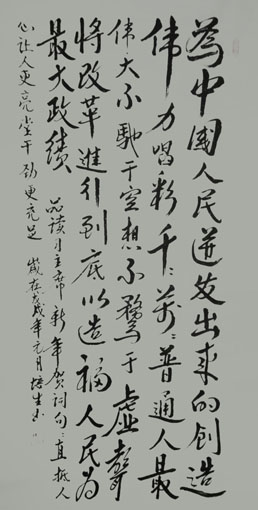 為中國人民迸發出來的創造
伟力喝彩千々萬々普通人最
伟大不馳于空想不鶩于虛聲
将改革進行到底以造福人民為
最大政绩
品读习主席新年贺词句々直抵人
心让人更亮堂干劲更充足
歲在戊戌年元月